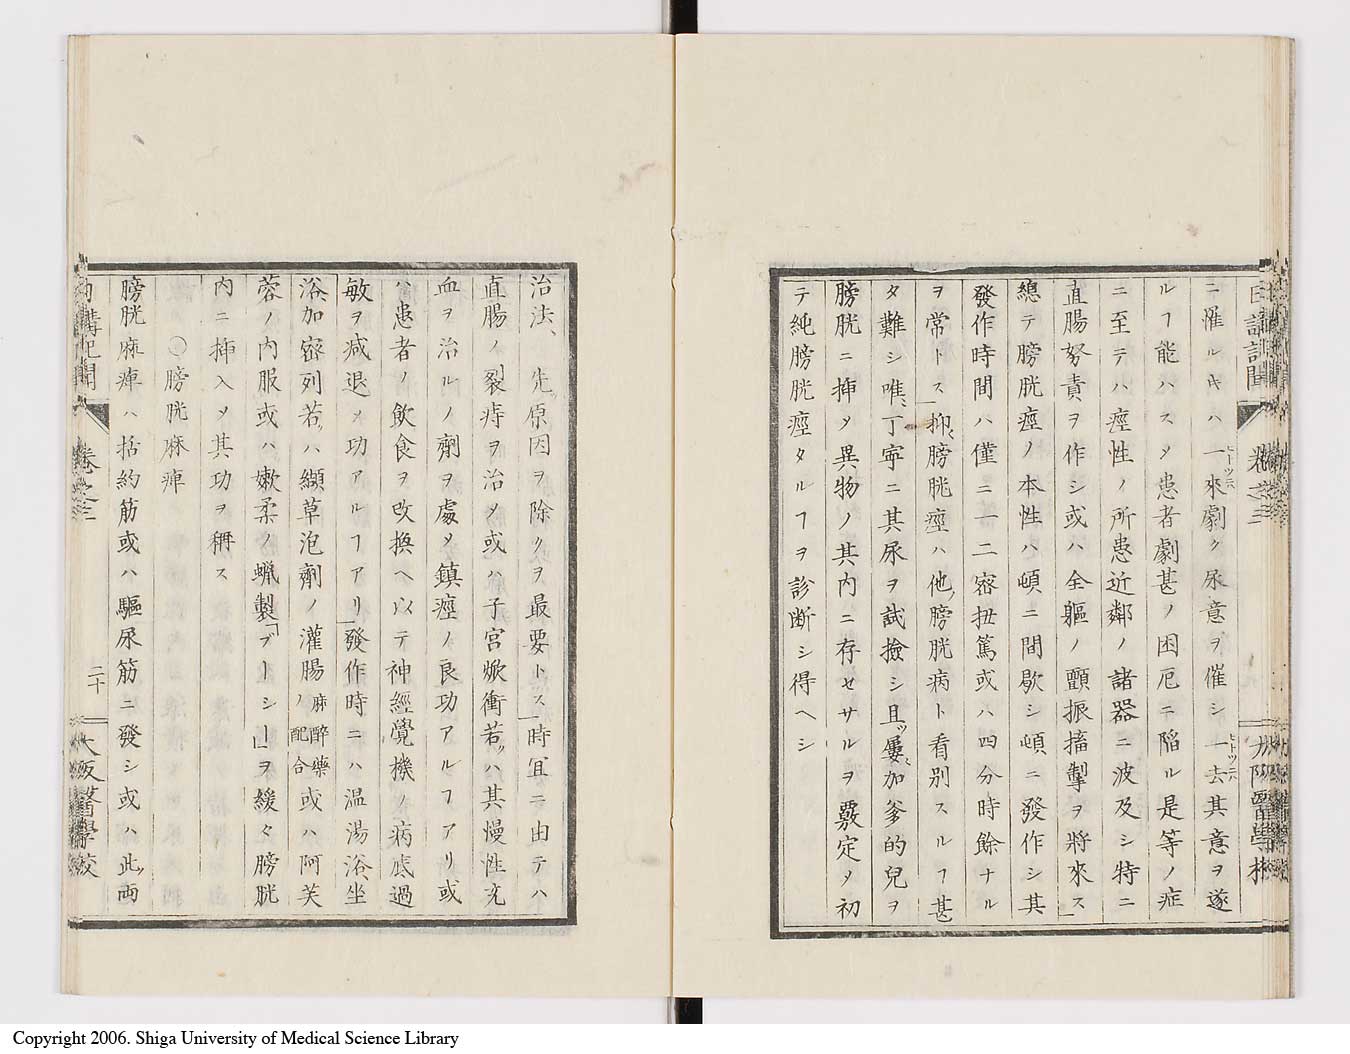 ニ罹ルキハ一ヒトツニハ來劇ク尿意ヲ催シ一ヒトツニハ去其意ヲ遂
ルヿ能ハスメ患者劇甚ノ困厄ニ陷ル是等ノ症
ニ至テハ痙性ノ所患近鄰ノ諸器ニ波及シ特ニ
直腸努責ヲ作シ或ハ全軀ノ顫振搐掣ヲ將來ス」
總テ膀胱痙ノ本性ハ頓ニ間歇シ頓ニ發作シ其
發作時間ハ僅ニ一二密扭篤或ハ四分時餘ナル
ヲ常トス」抑膀胱痙ハ他ノ膀胱病ト看別スルヿ甚
タ難シ唯丁寧ニ其尿ヲ試撿シ且ツ屢加爹的兒ヲ
膀胱ニ揷メ異物ノ其内ニ存セサルヲ覈定メ初
テ純膀胱痙タルヿヲ診断シ得ヘシ
治法、先ツ原因ヲ除クヲ最要トス」時宜ニ由テハ
直腸ノ裂痔ヲ治メ或ハ子宮焮衝若ハ其慢性充
血ヲ治ルノ劑ヲ處メ鎮痙ノ良功アルヿアリ或
ハ患者ノ飲食ヲ改換ヘ以テ神經覺機ノ病底過
敏ヲ减退メ功アルヿアリ」發作時ニハ温湯浴、坐
浴、加密列若ハ纈草泡劑ノ灌腸麻醉藥ノ配合或ハ阿芙
蓉ノ内服或ハ嫩柔ノ蝋製「ブーシー」ヲ緩々膀胱
内ニ揷入メ其功ヲ稱ス
〇膀胱麻痺
膀胱麻痺ハ括約筋或ハ驅尿筋ニ發シ或ハ此両
講記聞 卷之三 二十 大阪醫學校
Copyright 2006. Shiga University of Medical Science Library